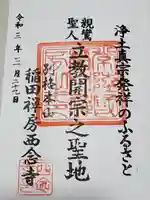 浄土真宗発祥のふるさと
親鸞
聖人
立教開宗之聖地
別格本山
稲田禅房西念寺
令和三年二月二十九日